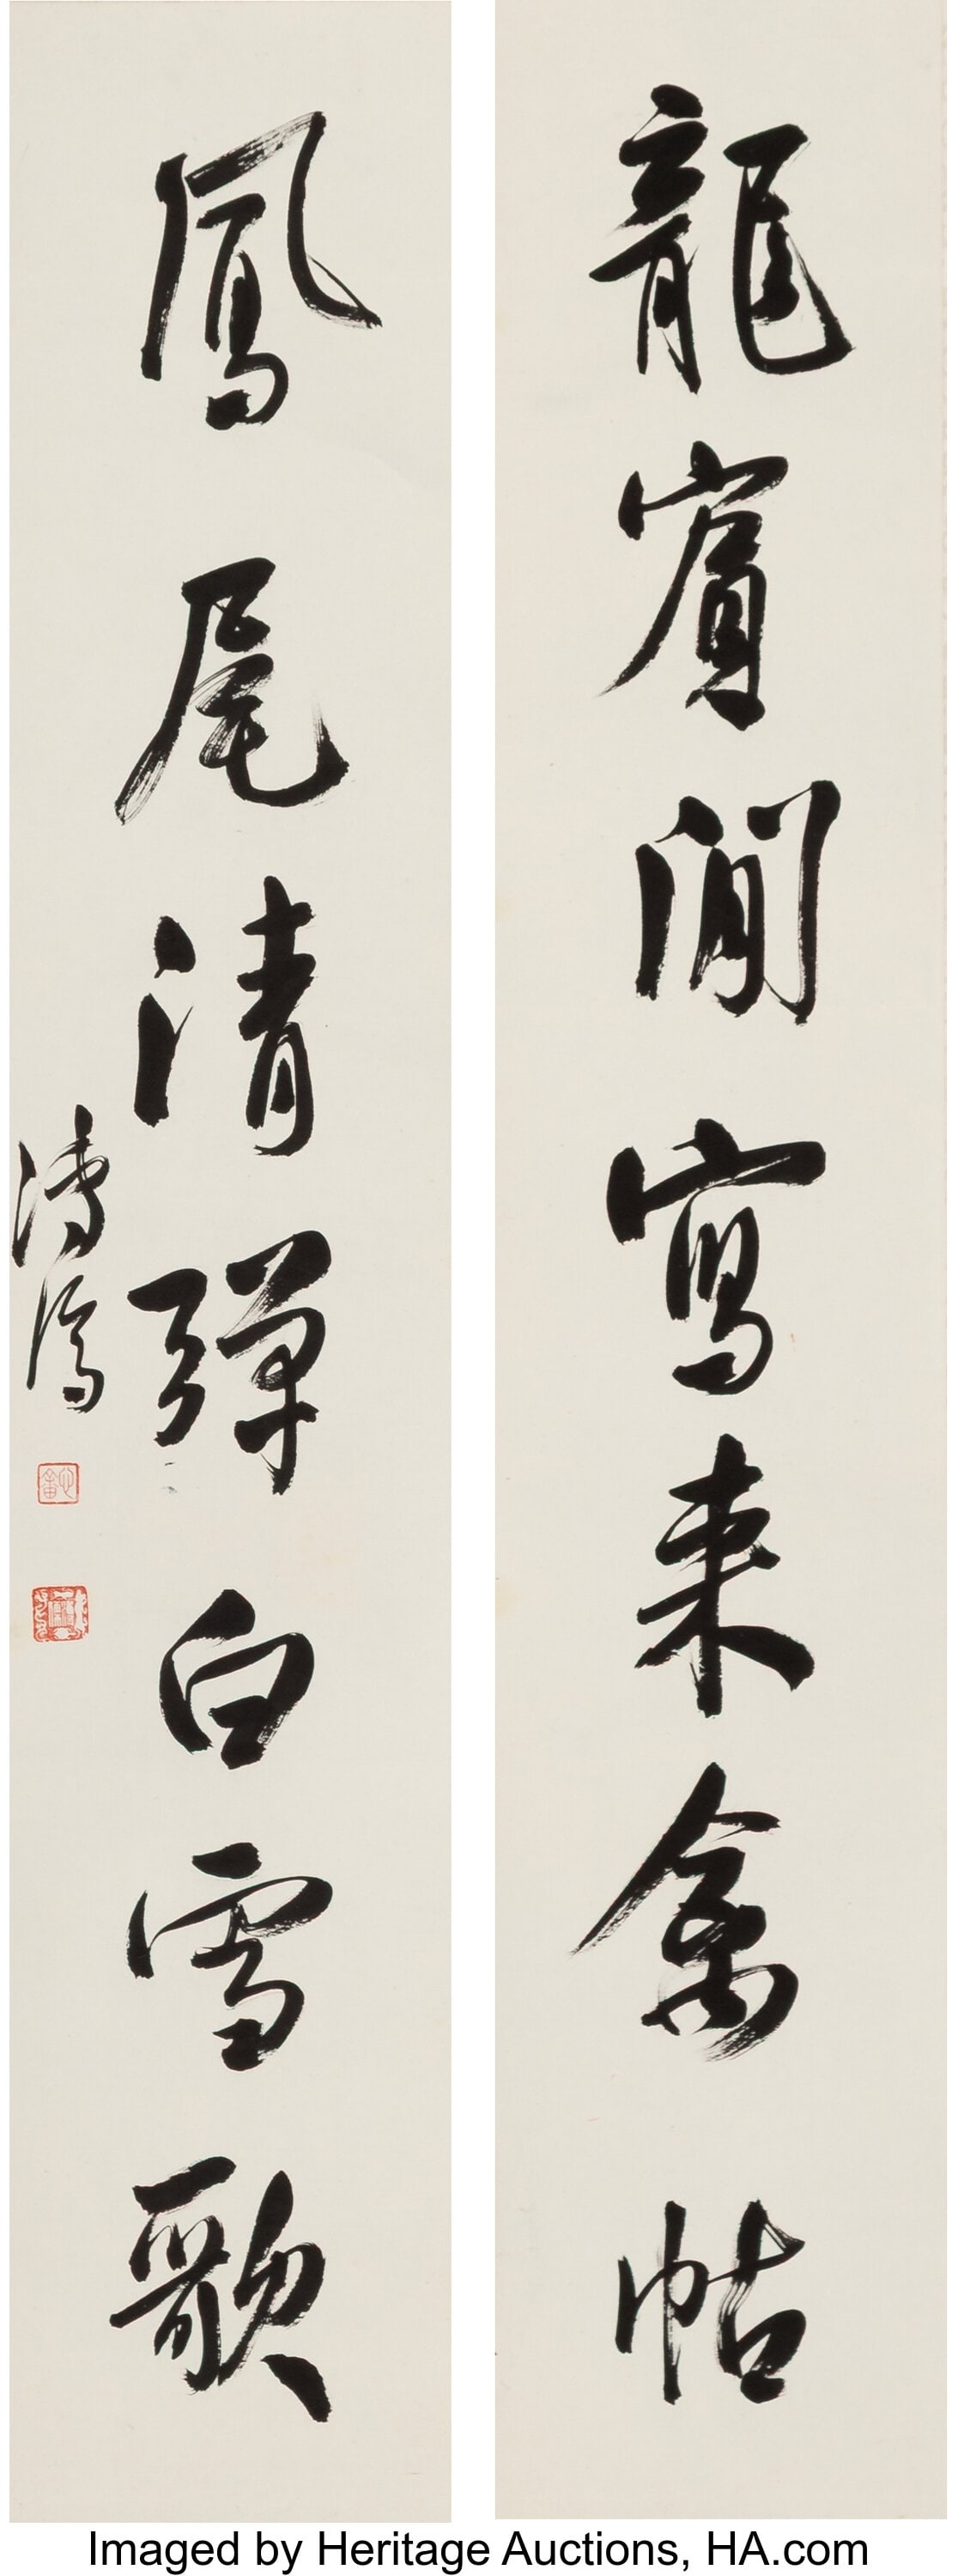 龍賓閒寫来禽帖
鳳尾清彈白雪歌
溥儒
Imaged by Heritage Auctions, HA.com